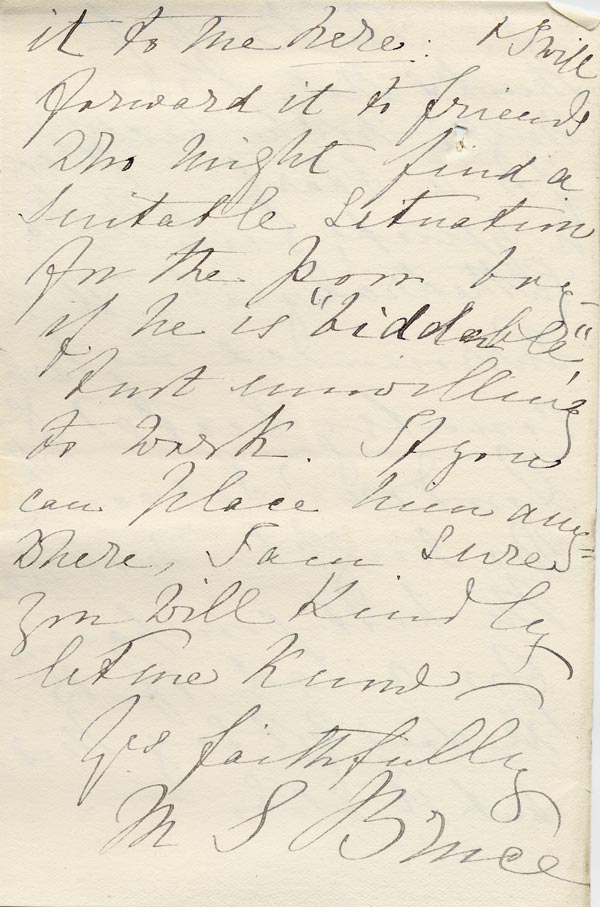 it to me here: & I will
forward it to friends
who might find a
suitable situation
for the poor boy –
if he is "biddable",
& not unwilling
to work. If you
can place him any=
where, I am sure
you will kindly
let me know –
Yrs faithfully
M S Bruce